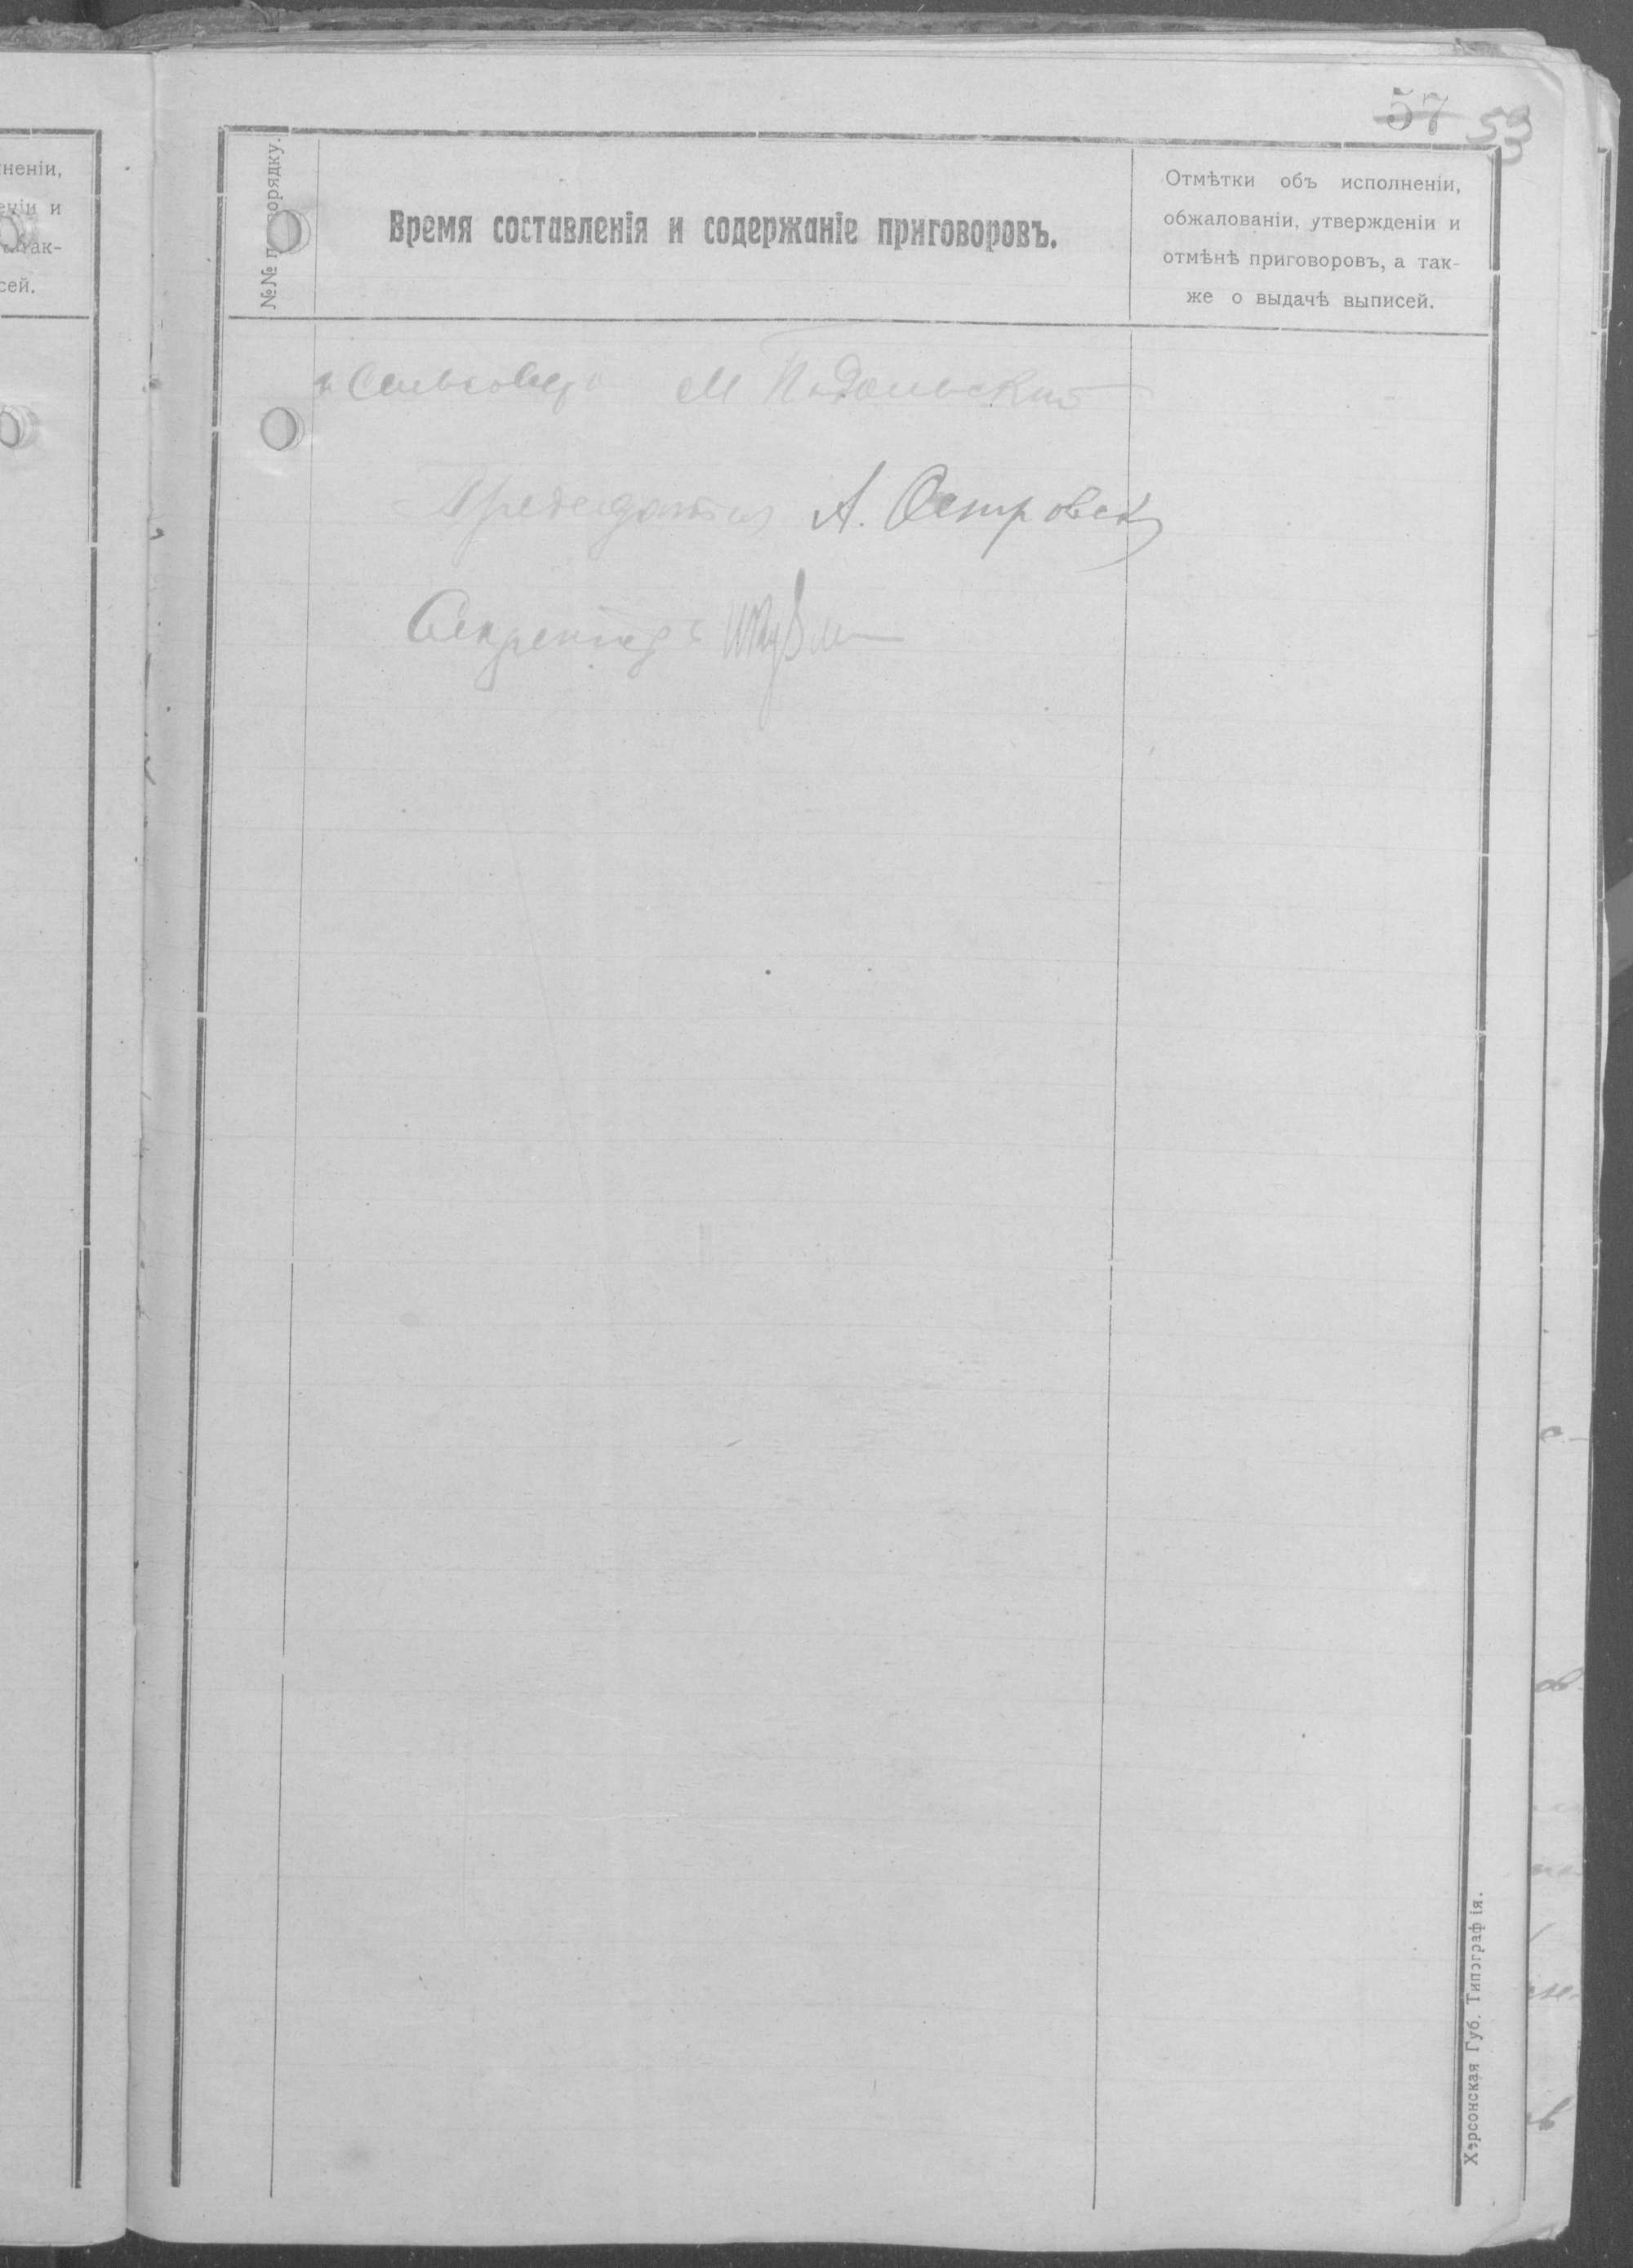 57 53
№№ по порядку.
Время составленія и содержаніе приговоровъ.
Отмѣтки объ исполненіи,
обжалованіи, утвержденіи и
отмѣнѣ приговоровъ, а так-
же о выдачѣ выписей.
М Подольский
Председатель А. Островск
Секретарь
Херсонская Губ. Типографія.
неніи,
еніи и
так-
сей.